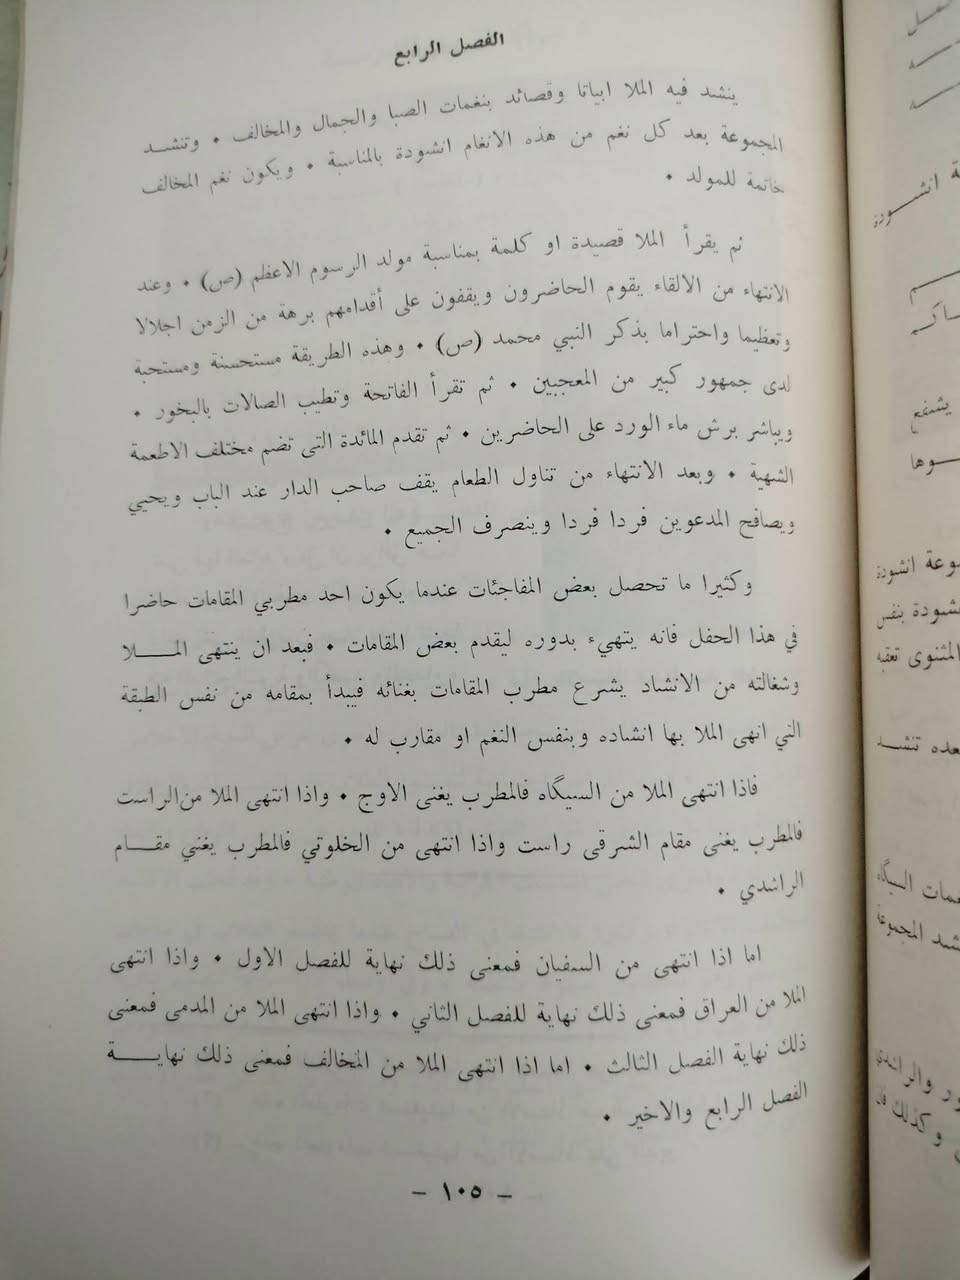 الفصل الرابع
ينشد فيه الملا ابياتا وقصائد بنغمات الصبا والجمال والمخالف • وتنشـد
المجموعة بعد كل نغم من هذه الانغام انشودة بالمناسبة • ويكون نغم المخالف
خاتمة للمولد •
ثم يقرأ الملا قصيدة او كلمة بمناسبة مولد الرسوم الاعظم (ص) • وعند
الانتهاء من الالقاء يقوم الحاضرون ويقفون على أقدامهم برهة من الزمن اجلالا
وتعظيما واحتراما بذكر النبي محمد (ص) • وهذه الطريقة مستحسنة ومستحبة
لدى جمهور كبير من المعجبين • ثم تقرأ الفاتحة وتطيب الصالات بالبخور •
ويباشر برش ماء الورد على الحاضرين • ثم تقدم المائدة التى تضم مختلف الاطعمة
الشهية • وبعد الانتهاء من تناول الطعام يقف صاحب الدار عند الباب ويحيي
ويصافح المدعوين فردا فردا وينصرف الجميع •
وكثيرا ما تحصل بعض المفاجئات عندما يكون احد مطربي المقامات حاضرا
في هذا الحفل فانه يتهيء بدوره ليقدم بعض المقامات • فبعد ان ينتهى المـــلا
وشغالته من الانشاد يشرع مطرب المقامات بغنائه فيبدأ بمقامه من نفس الطبقة
التي انهى الملا بها انشاده وبنفس النغم او مقارب له •
فاذا انتهى الملا من السيگاه فالمطرب يغنى الاوج • واذا انتهى الملا من الراست
فالمطرب يغنى مقام الشرقى راست واذا انتهى من الخلوتي فالمطرب يغني مقـــام
الراشدي •
اما اذا انتهى من السفيان فمعنى ذلك نهاية للفصل الاول • واذا انتهى
الملا من العراق فمعنى ذلك نهاية للفصل الثاني • واذا انتهى الملا من المدمى فمعنى
ذلك نهاية الفصل الثالث • اما اذا انتهى الملا من المخالف فمعنى ذلك نهايـــة
الفصل الرابع والاخير •
- ١٠٥ -
ة انشـــودة
يشفع
ـوها
ـوعة انشودة
ـشودة بنفس
المثنوى تعقبه
ـعده تنشـد
ـغمات السيگاه
ـشد المجموعة
ـور والراشدى
وكذلك